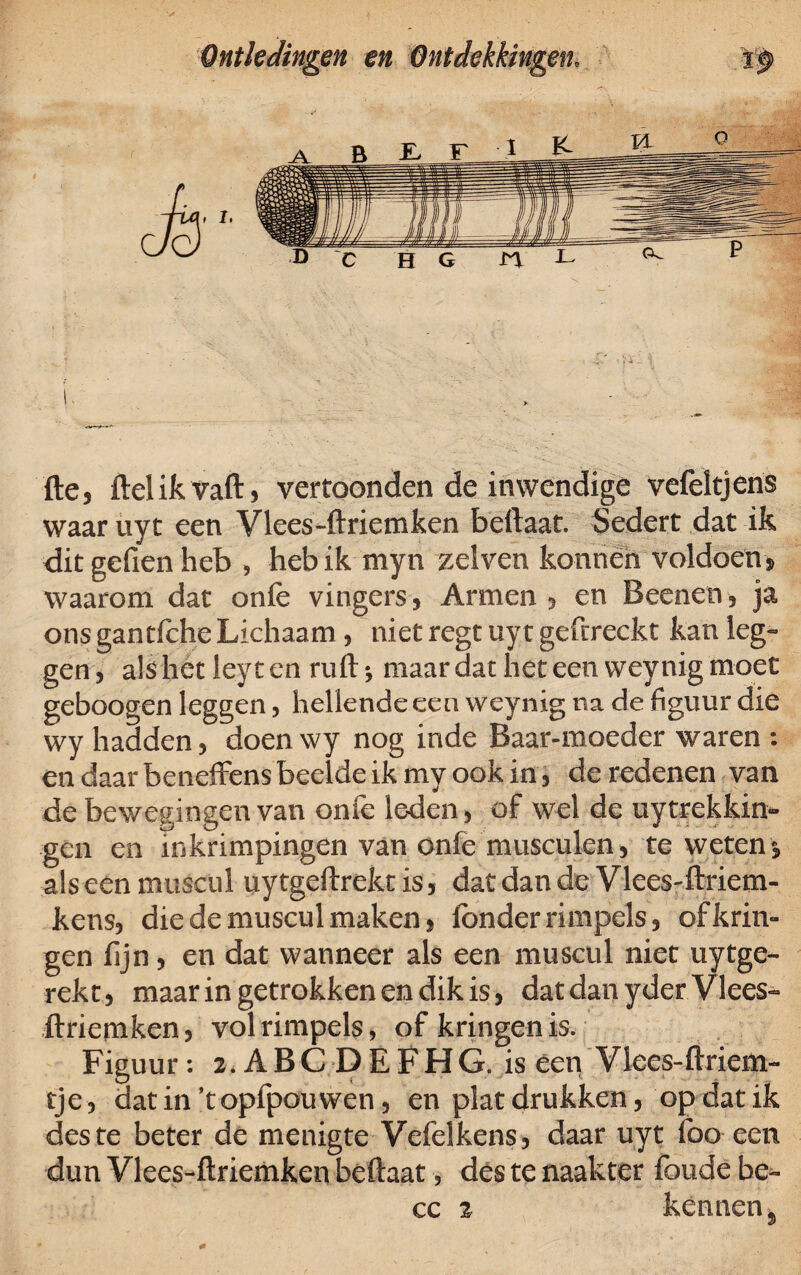 Ontledingen en Ontdekkingen. 19
A B E F I K N O
fig. 1.
D C H G M L Q P
ſte, ſtel ik vaſt, vertoonden de inwendige veſeltjens
waar uyt een Vlees-ſtriemken beſtaat. Sedert dat ik
dit geſien heb, heb ik myn zelven konnen voldoen,
waarom dat onſe vingers, Armen, en Beenen, ja
ons gantſche Lichaam, niet regt uyt geſtreckt kan leg-
gen, als het leyt en ruſt; maar dat het een weynig moet
geboogen leggen, hellende een weynig na de figuur die
wy hadden, doen wy nog inde Baar-moeder waren:
en daar beneffens beelde ik my ook in, de redenen van
de bewegingen van onſe leden, of wel de uytrekkin-
gen en inkrimpingen van onſe musculen, te weten;
als een muscul uytgeſtrekt is, dat dan de Vlees-ſtriem-
kens, die de muscul maken, ſonder rimpels, of krin-
gen ſijn, en dat wanneer als een muscul niet uytge-
rekt, maar in getrokken en dik is, dat dan yder Vlees-
ſtriemken, vol rimpels, of kringen is.
Figuur: 2. A B C D E F H G. is een Vlees-ſtriem-
tje, dat in 't opſpouwen, en plat drukken, op dat ik
des te beter de menigte Veſelkens, daar uyt ſoo een
dun Vlees-ſtriemken beſtaat, des te naakter ſoude be-
cc 2 kennen,